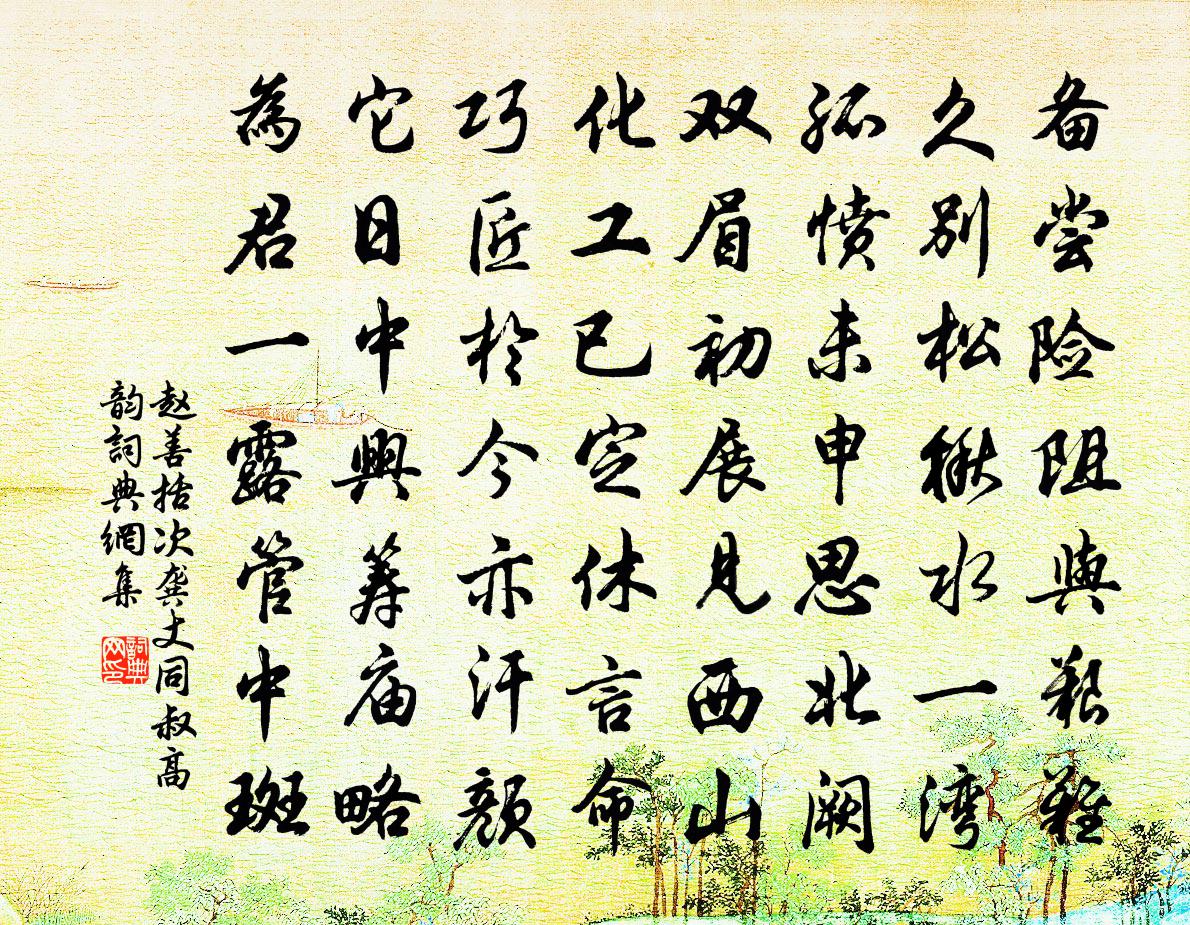 备尝险阻与艰难
久别松楸水一湾
孤愤未申思北阙
双眉初展见西山
化工已定休言命
巧匠於今亦汗颜
它日中興筹庙略
為君一露管中斑
赵善括次龚丈同叔高
韵詞典網集
詞典网印